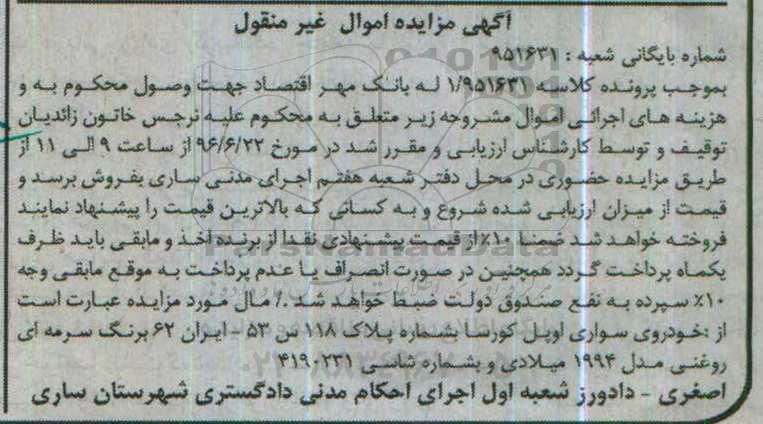 آگهی مزایده اموال غیر منقول
شماره بایگانی شعبه : ۹۵۱۶۳۱
بموجب پرونده کلاسه ۱/۹۵۱۶۳۱ له بانک مهر اقتصاد جهت وصول محکوم به و
هزینه های اجرائی اموال مشروحه زیر متعلق به محکوم علیه نرجس خاتون زائدیان
توقیف و توسط کارشناس ارزیابی و مقرر شد در مورخ ۹۶/۶/۲۲ از ساعت ۹ الی ۱۱ از
طریق مزایده حضوری در محل دفتر شعبه هفتم اجرای مدنی ساری بفروش برسد و
قیمت از میزان ارزیابی شده شروع و به کسانی که بالاترین قیمت را پیشنهاد نمایند
فروخته خواهد شد ضمنا ۱۰٪ از قیمت پیشنهادی نقدا از برنده اخذ و مابقی باید ظرف
یکماه پرداخت گردد همچنین در صورت انصراف یا عدم پرداخت به موقع مابقی وجه
۱۰٪ سپرده به نفع صندوق دولت ضبط خواهد شد ./ مال مورد مزایده عبارت است
از :خودروی سواری اوپل کورسا بشماره پلاک ۱۱۸ س ۵۳ - ایران ۶۲ برنگ سرمه ای
روغنی مدل ۱۹۹۴ میلادی و بشماره شاسی ۴۱۹۰۲۳۱
اصغری - دادورز شعبه اول اجرای احکام مدنی دادگستری شهرستان ساری
ParsNamadData